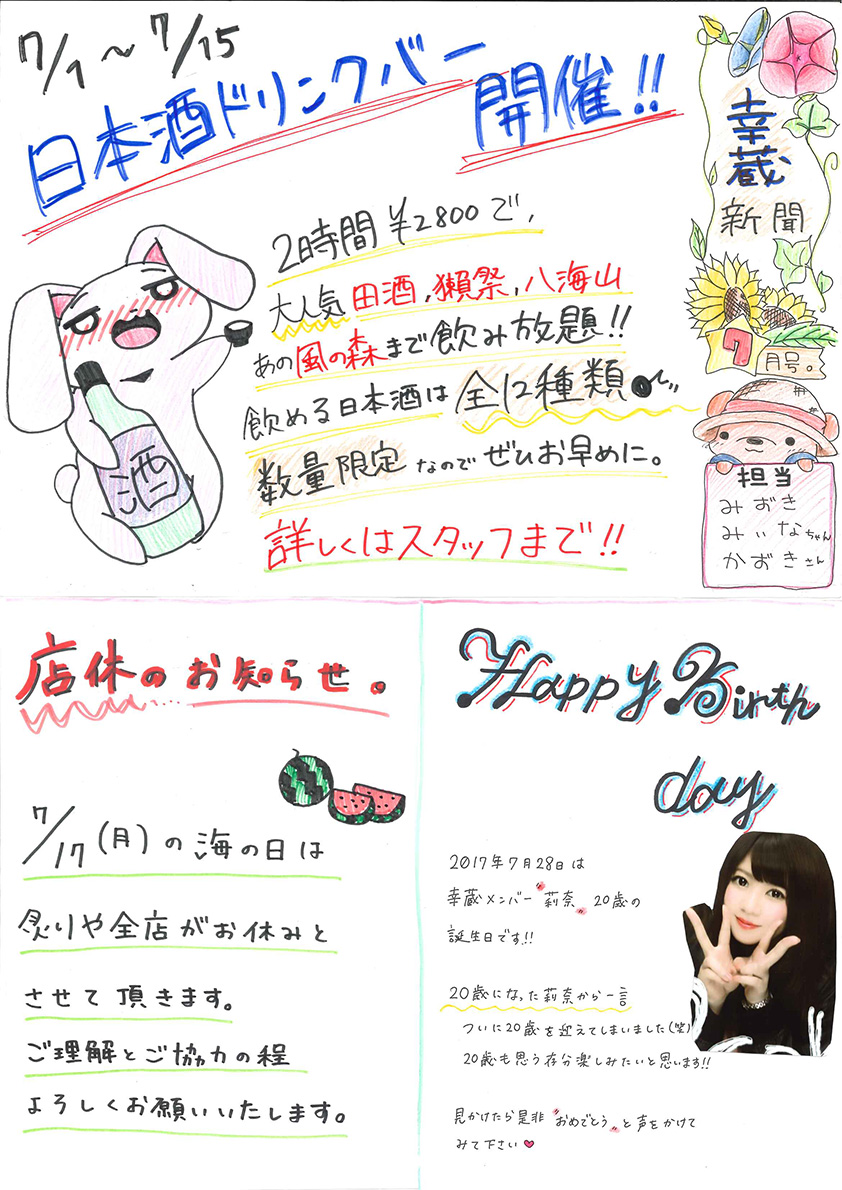 7/1～7/15
日本酒ドリンクバー
開催!!
幸蔵
新聞
7
月号。
担当
みおき
みぃなちゃん
かずきさん
2時間¥2800で、
大人気 田酒、獺祭、八海山
あの風の森まで飲み放題!!
飲める日本酒は全12種類
数量限定なのでぜひお早めに。
詳しくはスタッフまで!!
酒
店休のお知らせ。
7/17(月)の海の日は
炙りや全店がお休みと
させて頂きます。
ご理解とご協力の程
よろしくお願いいたします。
Happy Birth
day
2017年7月28日は
幸蔵メンバー〝莉奈〟20歳の
誕生日です!!
20歳になった莉奈から一言
ついに20歳を迎えてしまいました(笑)
20歳も思う存分楽しみたいと思います!!
見かけたら是非〝おめでとう〟と声をかけて
みて下さい♥